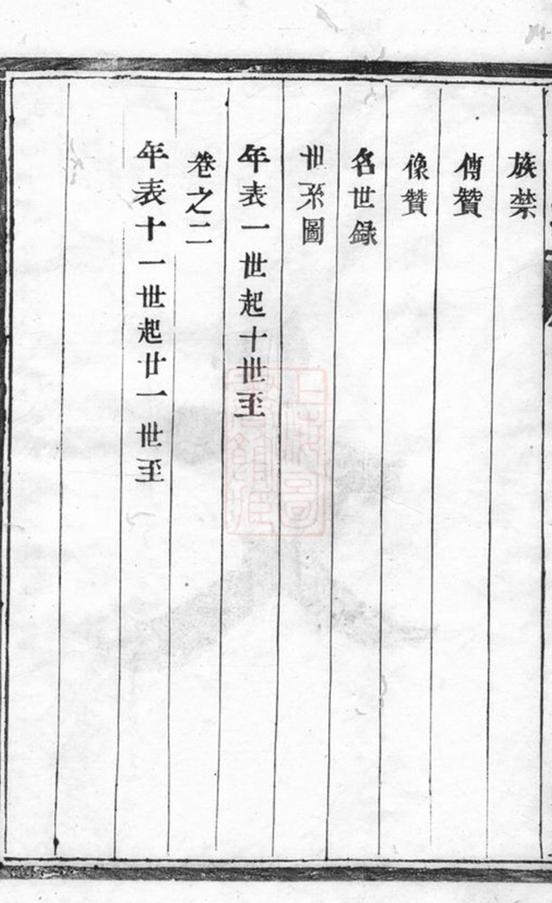 族禁
傳贊
像贊
名世録
世系圖
年表一世起十世至
卷之二
年表十一世起廿一世至